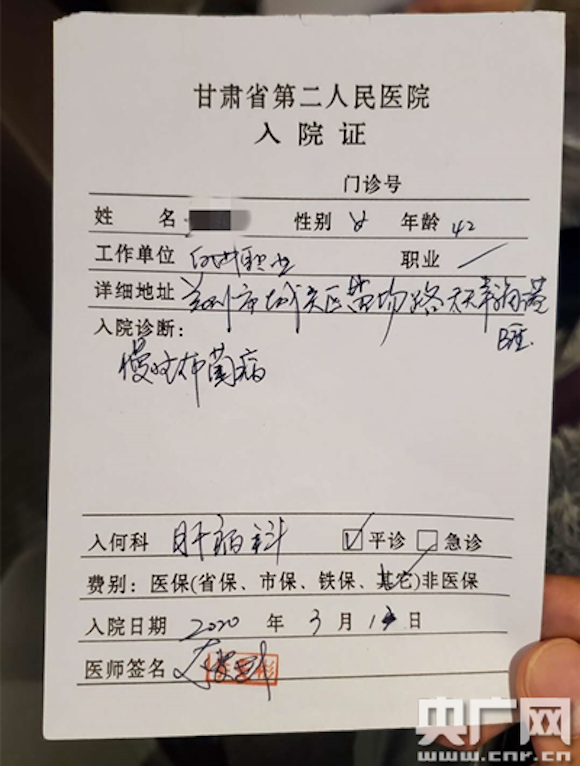 甘肃省第二人民医院
入院证
门诊号
姓 名 性别 女 年龄 42
工作单位 自由职业 职业 /
详细地址 兰州市城关区苗场路天庆
入院诊断:
慢性布菌病
入何科 肝病科 ☑平诊 □急诊
费别: 医保(省保、市保、铁保、其它)非医保
入院日期 2020 年 3 月 日
医师签名
央广网
www.cnr.cn